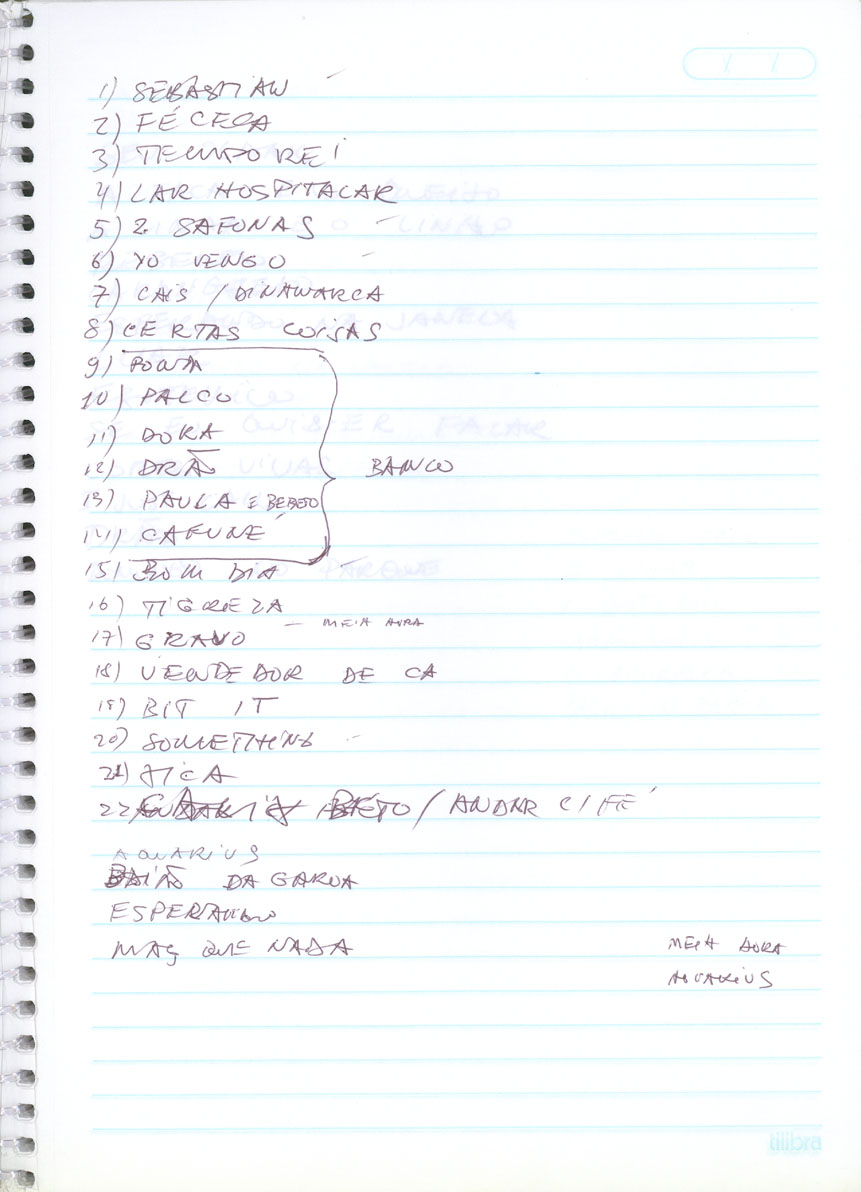 1) SEBASTIAN
2) FÉ CEGA
3) TEMPO REI
4) LAR HOSPITALAR
5) 2 SAFONAS
6) YO VENGO
7) CAIS / DINAMARCA
8) CERTAS COISAS
9) PONTA
10) PALCO
11) DORA
12) DRÃO
BANCO
13) PAULA E BEBETO
14) CAFUNÉ
15) BOM DIA
16) TIGREZA
MEIA HORA
17) GRAVO
18) VENDEDOR DE CA
19) BIT IT
20) SOMETHING
21) JICA
22) BETO / ANDAR C/ FÉ
AQUARIUS
BAIÃO DA GAROA
ESPERANDO
MAS QUE NADA
MEIA HORA
AQUARIUS
tilibra